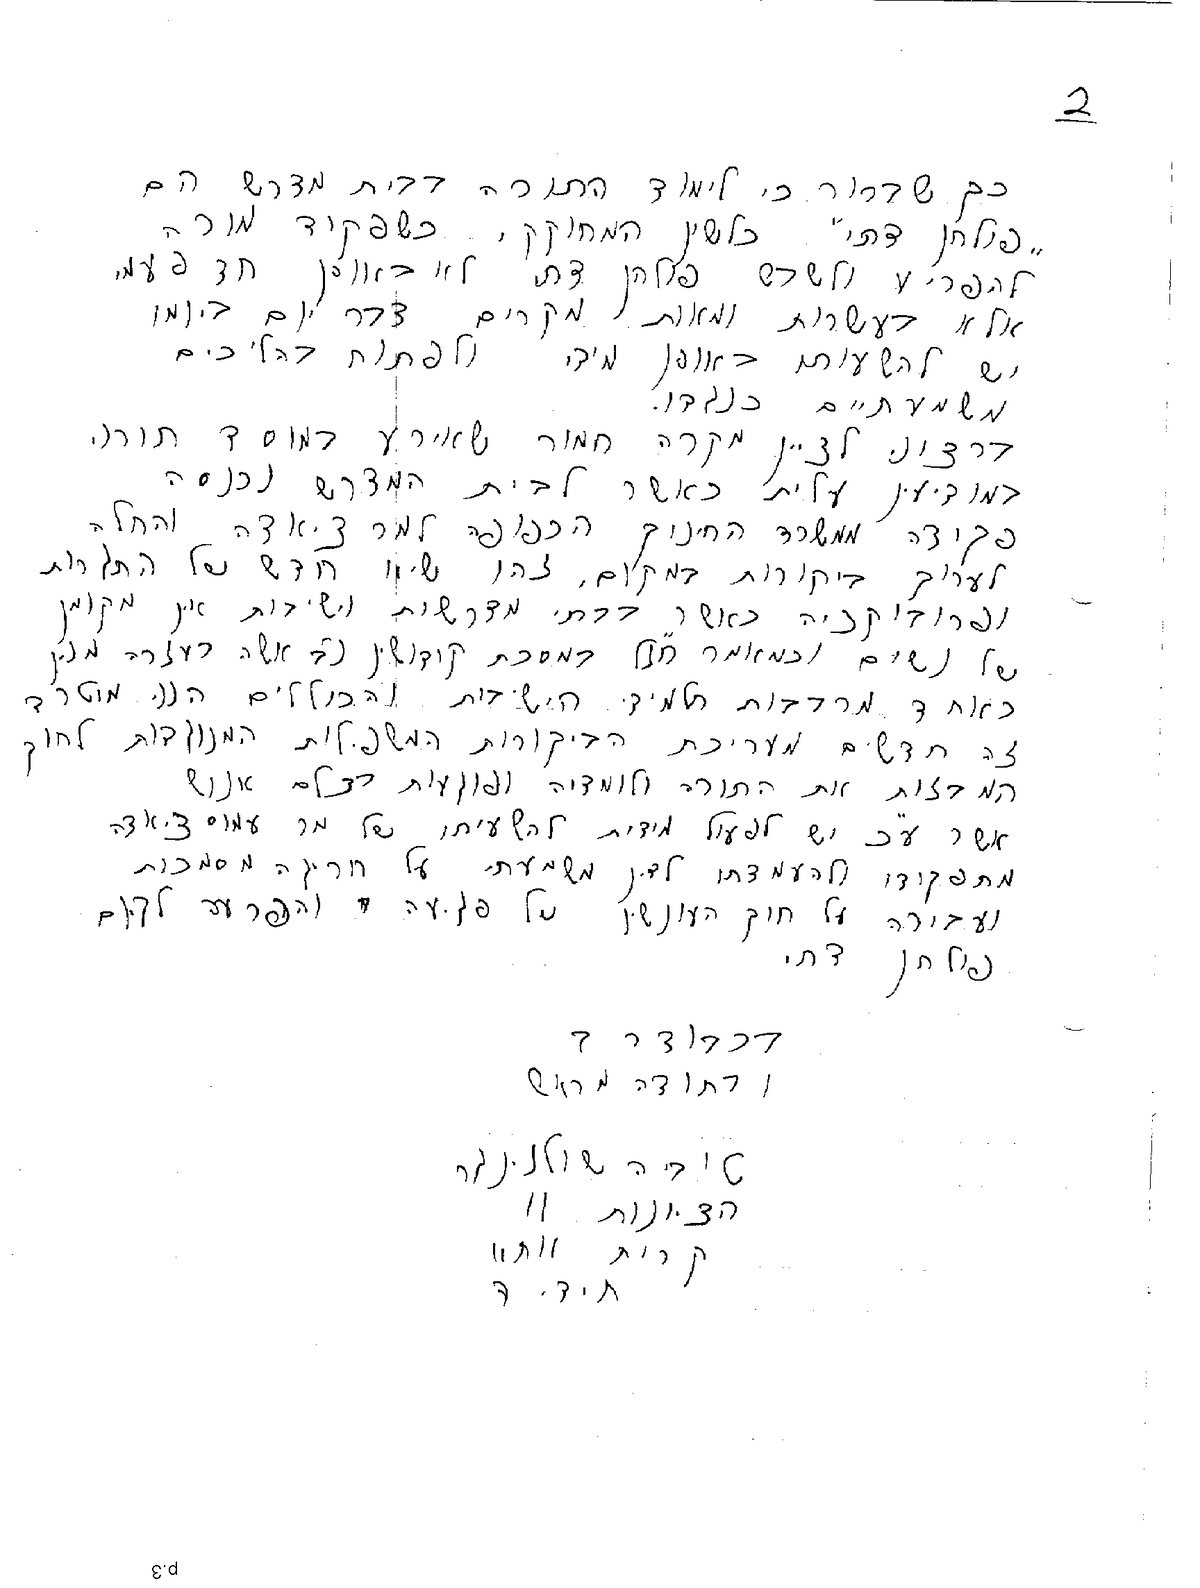 2
כך שברור כי לימוד התורה בבית מדרש הם
"פולחן דתי" כלשון המחוקק, כשפקוד מורה
להפריע ולשבש פולחן דתי לא באופן חד פעמי
אלא בעשרות ומאות מקרים דבר יום ביומו
יש להשעותו באופן מידי ולפתוח בהליכים
משמעתיים כנגדו.
ברצוני לציין מקרה חמור שאירע במוסד תורני
במודיעין עלית כאשר לבית המדרש נכנסה
פקידה ממשרד החינוך הכפופה למר ציאדה והחלה
לערוך ביקורות במקום, זהו שיא חדש של התגרות
ופרובוקציה כאשר בבתי מדרשות וישיבות אין מקומן
של נשים וכמאמר חז"ל במסכת קידושין נב אשה בעזרה מנין
כאחד מרבבות תלמידי הישיבות והכוללים הנני מוטרד
זה חדשים מעריכת הביקורות המשפילות המנוגדות לחוק
המבזות את התורה ולומדיה ופוגעות בצלם אנוש
אשר ע"כ יש לפעול מידית להשעיתו של מר עמוס ציאדה
מתפקודו ולהעמדתו לדין משמעתי על חריגה מסמכות
ועבירה על חוק העונשין של פגיעה והפרעה לקיום
פולחן דתי
בכבוד רב
ובתודה מראש
טוביה שולזינגר
הציונות 11
קרית אתא
ת.ד. ה
p.3